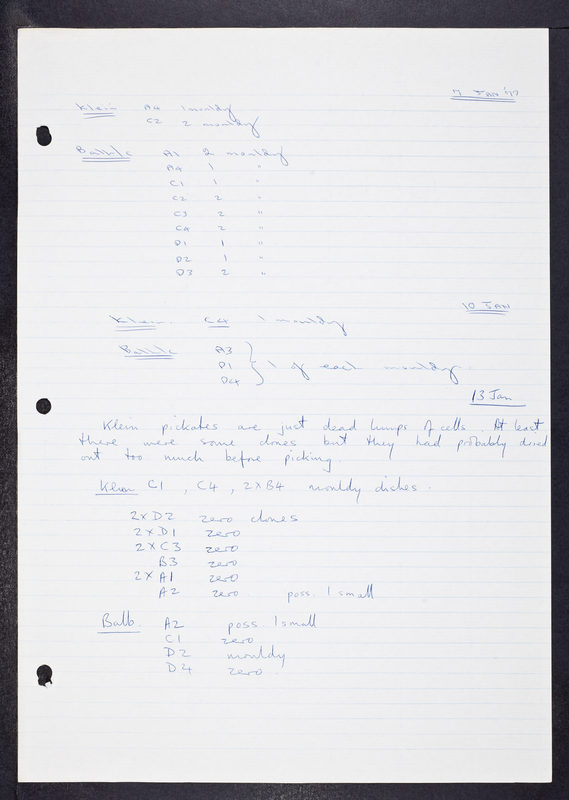 7 JAN '77
Klein A4 1 mouldy
C2 2 mouldy
Balb/c A1 2 mouldy
A4 1 "
C1 1 "
C2 2 "
C3 2 "
C4 2 "
D1 1 "
D2 1 "
D3 2 "
10 JAN
Klein. C4 1 mouldy
Balb/c A3
D1 } 1 of each mouldy.
D4
13 Jan
Klein pickates are just dead lumps of cells. At least
there were some clones but they had probably dried
out too much before picking
Klein C1, C4, 2xB4 mouldy dishes.
2xD2 zero clones
2xD1 zero
2xC3 zero
B3 zero
2xA1 zero
A2 zero. poss. 1 small
Balb. A2 poss 1 small
C1 zero
D2 mouldy
D4 zero.